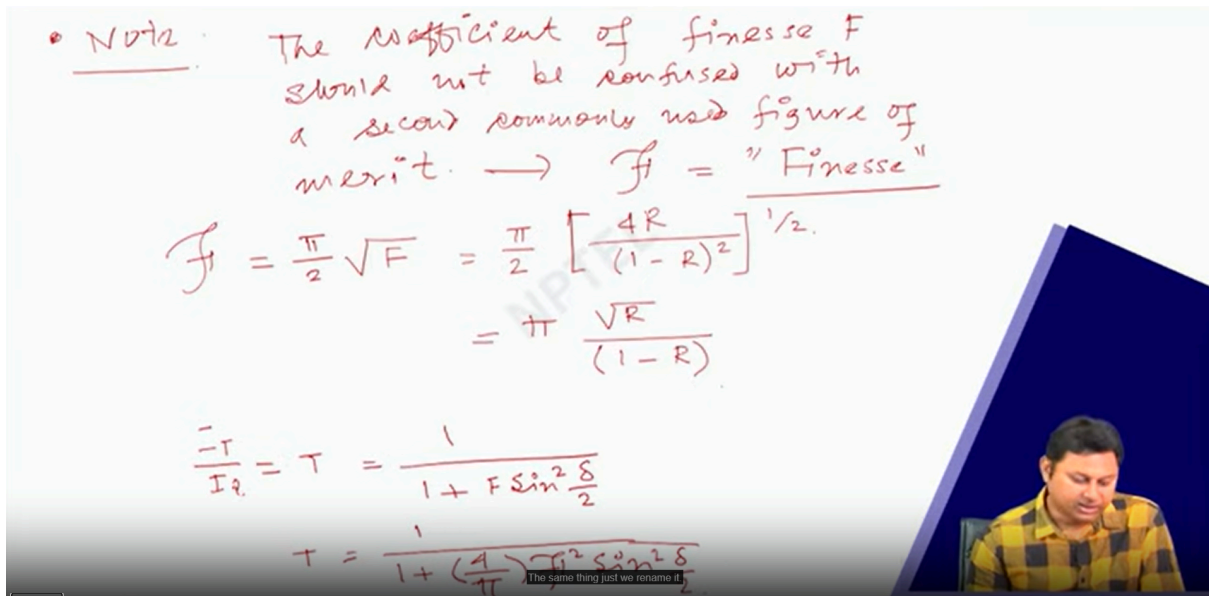 • Note. The coefficient of finesse F
should not be confused with
a second commonly used figure of
merit. → ℱ = "Finesse"
ℱ = π/2 √F = π/2 [4R/(1 - R)²]^1/2.
= π √R/(1 - R)
NPTEL
I_T/I_i = T = 1/(1 + F Sin² δ/2)
T = 1/(1 + (4/π) ℱ² Sin² δ/2)
The same thing just we rename it.